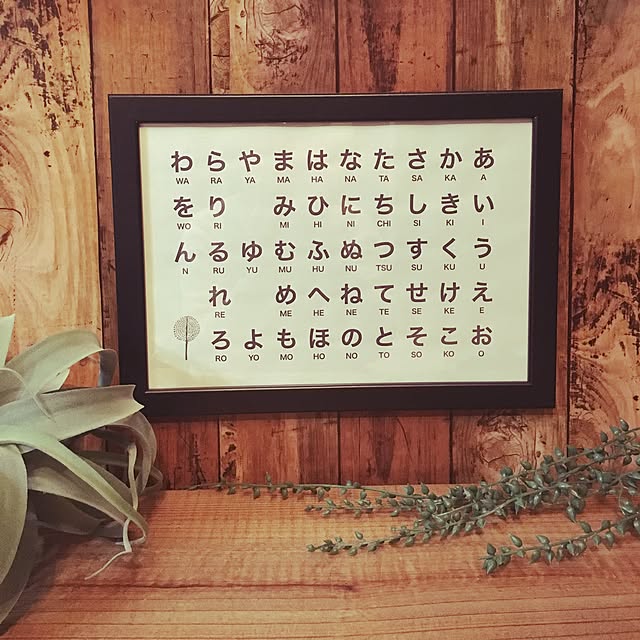 わ ら や ま は な た さ か あ
WA RA YA MA HA NA TA SA KA A
を り み ひ に ち し き い
WO RI MI HI NI CHI SI KI I
ん る ゆ む ふ ぬ つ す く う
N RU YU MU HU NU TSU SU KU U
れ め へ ね て せ け え
RE ME HE NE TE SE KE E
ろ よ も ほ の と そ こ お
RO YO MO HO NO TO SO KO O